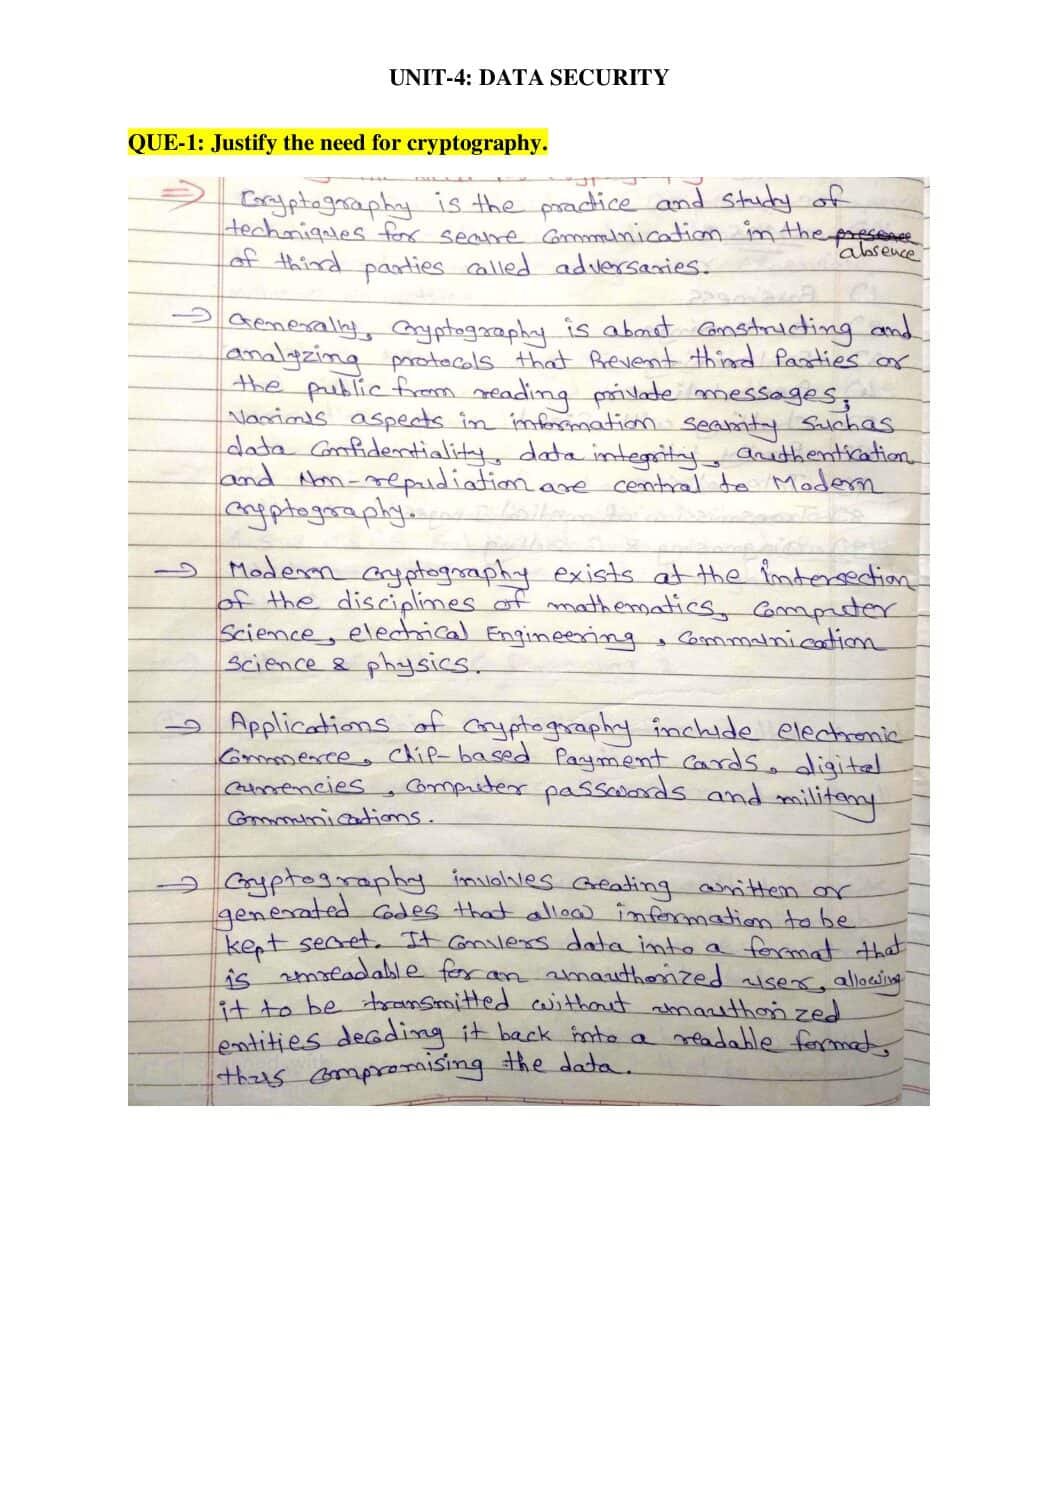 UNIT-4: DATA SECURITY
QUE-1: Justify the need for cryptography.
⇒ Cryptography is the practice and study of
techniques for secure communication in the presence
absence
of third parties called adversaries.
→ Generally, cryptography is about constructing and
analyzing protocols that Prevent third Parties or
the public from reading private messages;
Various aspects in information security such as
data confidentiality, data integrity, authentication
and Non-repudiation are central to Modern
cryptography.
→ Modern cryptography exists at the intersection
of the disciplines of mathematics, computer
science, electrical Engineering, communication
science & physics.
→ Applications of cryptography include electronic
commerce, chip-based Payment cards, digital
currencies, computer passwords and military
communications.
→ Cryptography involves creating written or
generated codes that allow information to be
kept secret. It convers data into a format that
is unreadable for an unauthorized user, allowing
it to be transmitted without unauthorized
entities decoding it back into a readable format,
thus compromising the data.